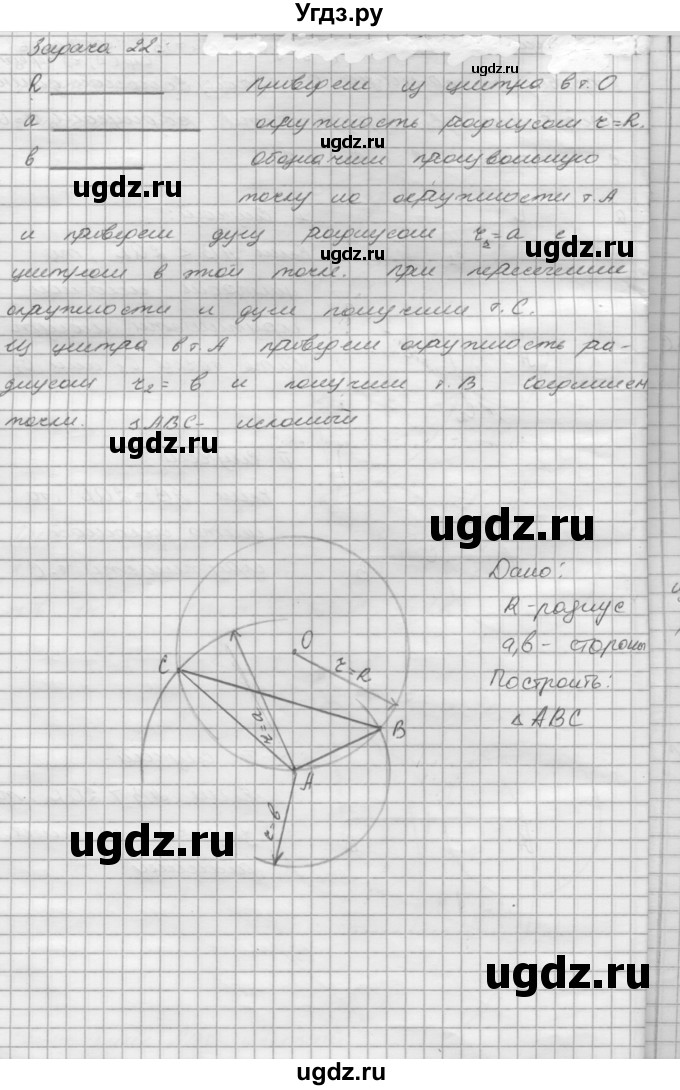 Угдз.ру
Задача 22:
ugdz.ru
R проведем из центра в т. О
a окружность радиусом r=R.
в Обозначим произвольную
ugdz.ru
точку на окружности т. А
и проведем дугу радиусом r₁=a с
ugdz.ru
центром в этой точке. При пересечении
окружности и дуги получим т. С.
ugdz.ru
Из центра в т. А проведем окружность ра-
диусом r₂= в и получим т. В. Соединяем
точки. △ABC- искомый
ugdz.ru
ugdz.ru
Дано:
R-радиус
a,в- стороны
Построить:
△ABC
O
C
r=R
r=a
B
A
r=в
ugdz.ru
ugdz.ru
ugdz.ru